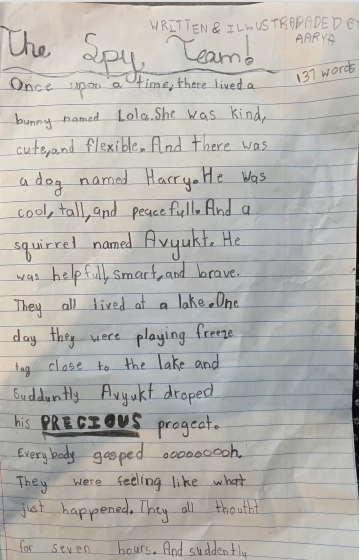 WRITTEN & ILLUSTRADADED BY
AARYA
The Spy Team!
137 words
Once upon a time, there lived a
bunny named Lola. She was kind,
cute, and flexible. And there was
a dog named Harry. He was
cool, tall, and peacefull. And a
squirrel named Avyukt. He
was helpfull, smart, and brave.
They all lived at a lake. One
day they were playing freeze
tag close to the lake and
Sudduntly Avyukt droped
his PRECIOUS progeat.
Everybody gasped oooooooooh.
They were feeling like what
just happened. They all thoutht
for seven hours. And suddently